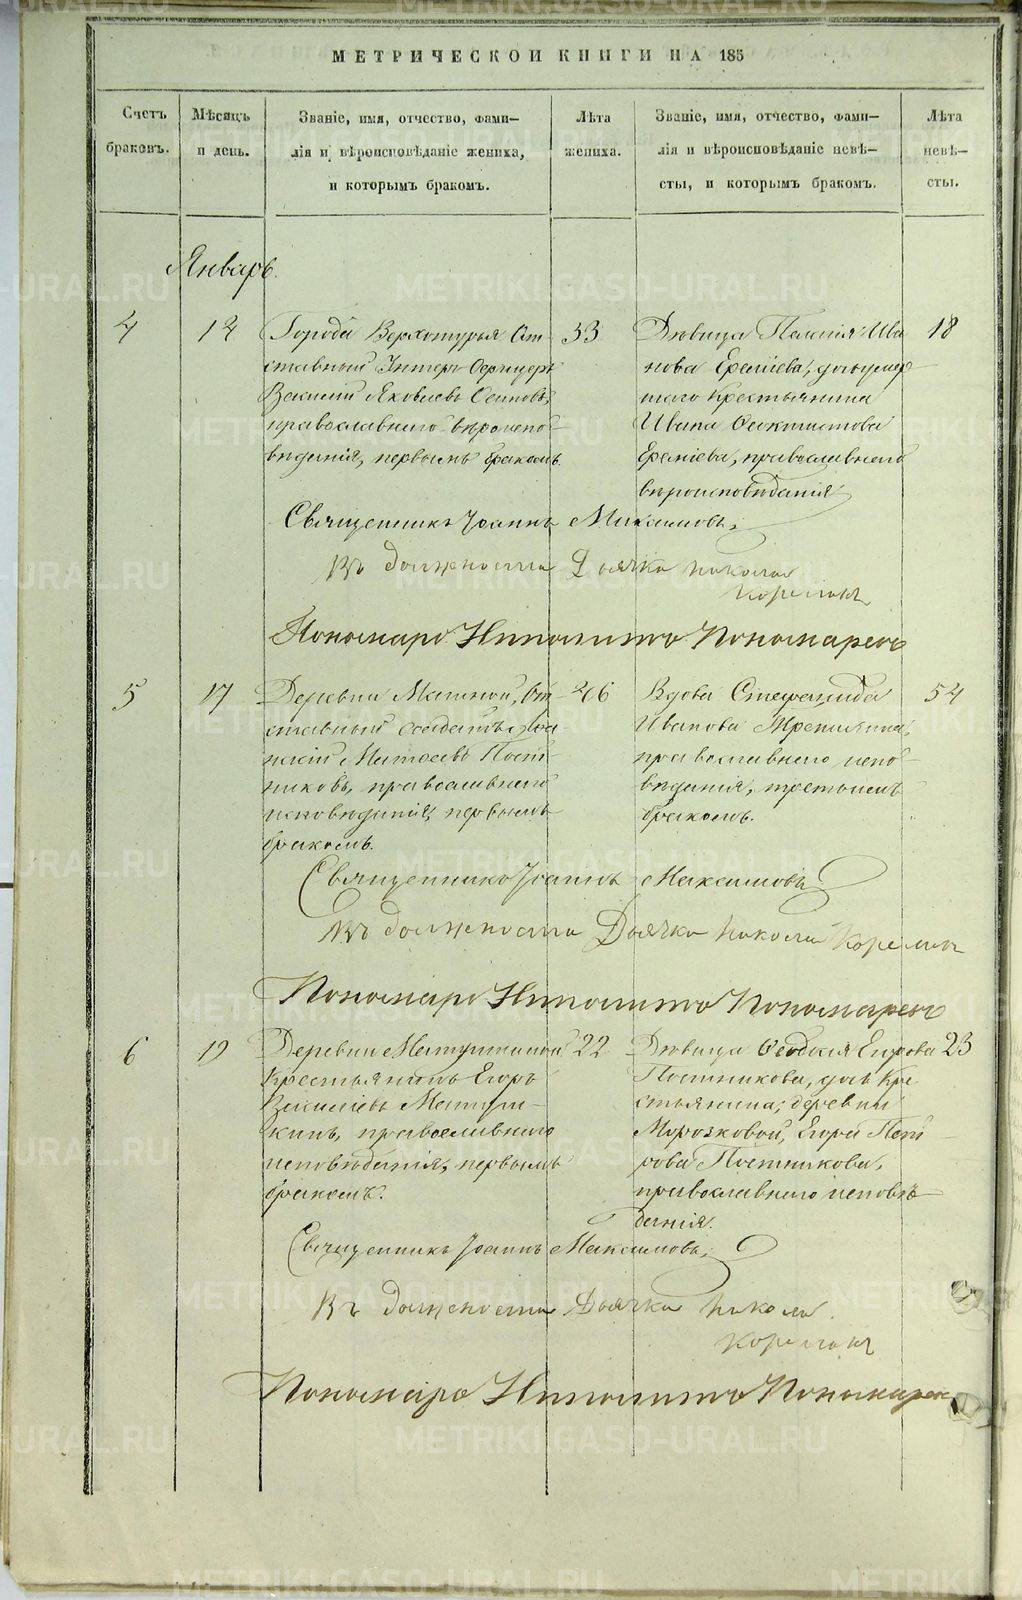 МЕТРИЧЕСКОЙ КНИГИ НА 185
Счетъ браковъ.
Мѣсяцъ и день.
Званіе, имя, отчество, фами-
лія и вѣроисповѣданіе жениха,
и которымъ бракомъ.
Лѣта жениха.
Званіе, имя, отчество, фами-
лія и вѣроисповѣданіе невѣ-
сты, и которымъ бракомъ.
Лѣта невѣ-
сты.
Январь.
4
12
Города Верхотурья От-
ставный Унтеръ Офицеръ
Василій Яковлевъ Осиповъ,
православнаго вѣроиспо-
вѣданія, первымъ бракомъ
33
Дѣвица Ива
нова Еремѣева, дочь умер
шаго крестьянина
Ивана Феоктистова
Еремѣева, православнаго
вѣроисповѣданія
18
Священникъ Іоаннъ Максимовъ,
Въ должности Дьячка Никола
Пономарь Ипполитъ Пономаревъ
5
17
Деревни От
ставный солдатъ
Матѳеевъ Пост
никовъ, православнаго
исповѣданія, первымъ
бракомъ.
46
Вдова Стефанида
Иванова
православнаго испо-
вѣданія, третьимъ
бракомъ.
54
Священникъ Іоаннъ Максимовъ
Въ должности Дьячка Никола
Пономарь Ипполитъ Пономаревъ
6
19
Деревни Матушкиной
Крестьянинъ Егоръ
Васильевъ Матуш-
кинъ, православнаго
исповѣданія, первымъ
бракомъ.
22
Дѣвица Егорова
Постникова, дочь кре
стьянина, деревни
Морозковой, Егора Пет
рова Постникова,
православнаго исповѣ-
данія.
23
Священникъ Іоаннъ Максимовъ,
Въ должности Дьячка Никола
Пономарь Ипполитъ Пономарев
METRIKI.GASO-URAL.RU